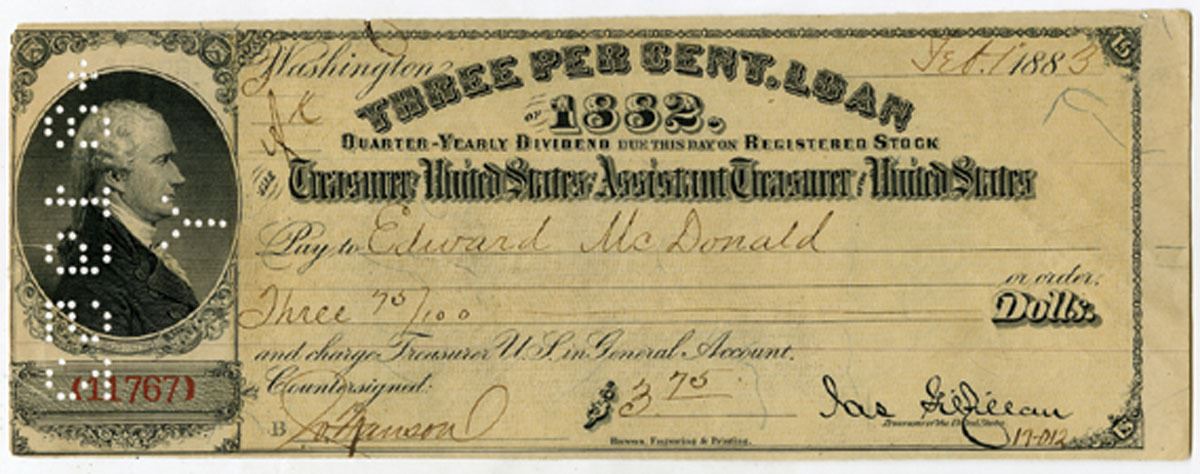 Washington, Feb. 1 1883
THREE PER CENT. LOAN
OF 1882.
QUARTER-YEARLY DIVIDEND DUE THIS DAY ON REGISTERED STOCK
THE Treasurer United States Assistant Treasurer United States
Pay to Edward McDonald
or order,
Three 75/100 Dolls.
and charge Treasurer U.S. in General Account.
(11767)
Countersigned:
B
$3 75
Jas Gilfillan
Treasurer of the United States
17-012
Bureau, Engraving & Printing.